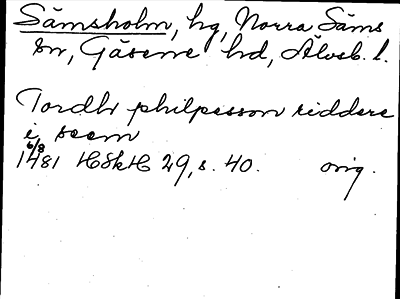 Sämsholm, hg, Norra Säms
sn, Gäsene hd, Älvsb. l.
Tordh philpesson riddere
i seem
6/8
1481 HSkH 29, s. 40. orig.